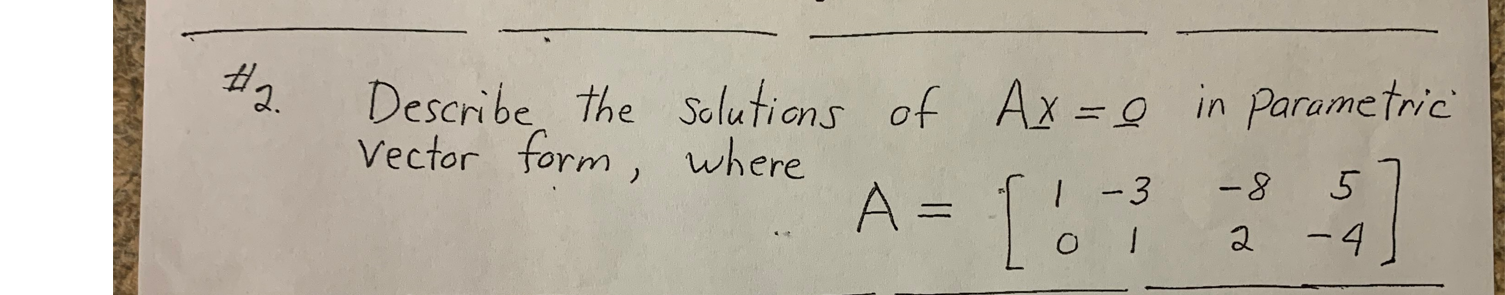 #2. Describe the solutions of Ax = 0 in parametric
vector form, where
A = [ 1 -3 -8 5
0 1 2 -4 ]